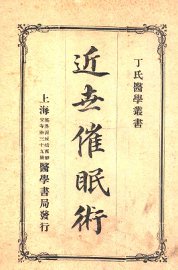 丁氏醫學叢書
近世催眠術
上海
醫學書局發行